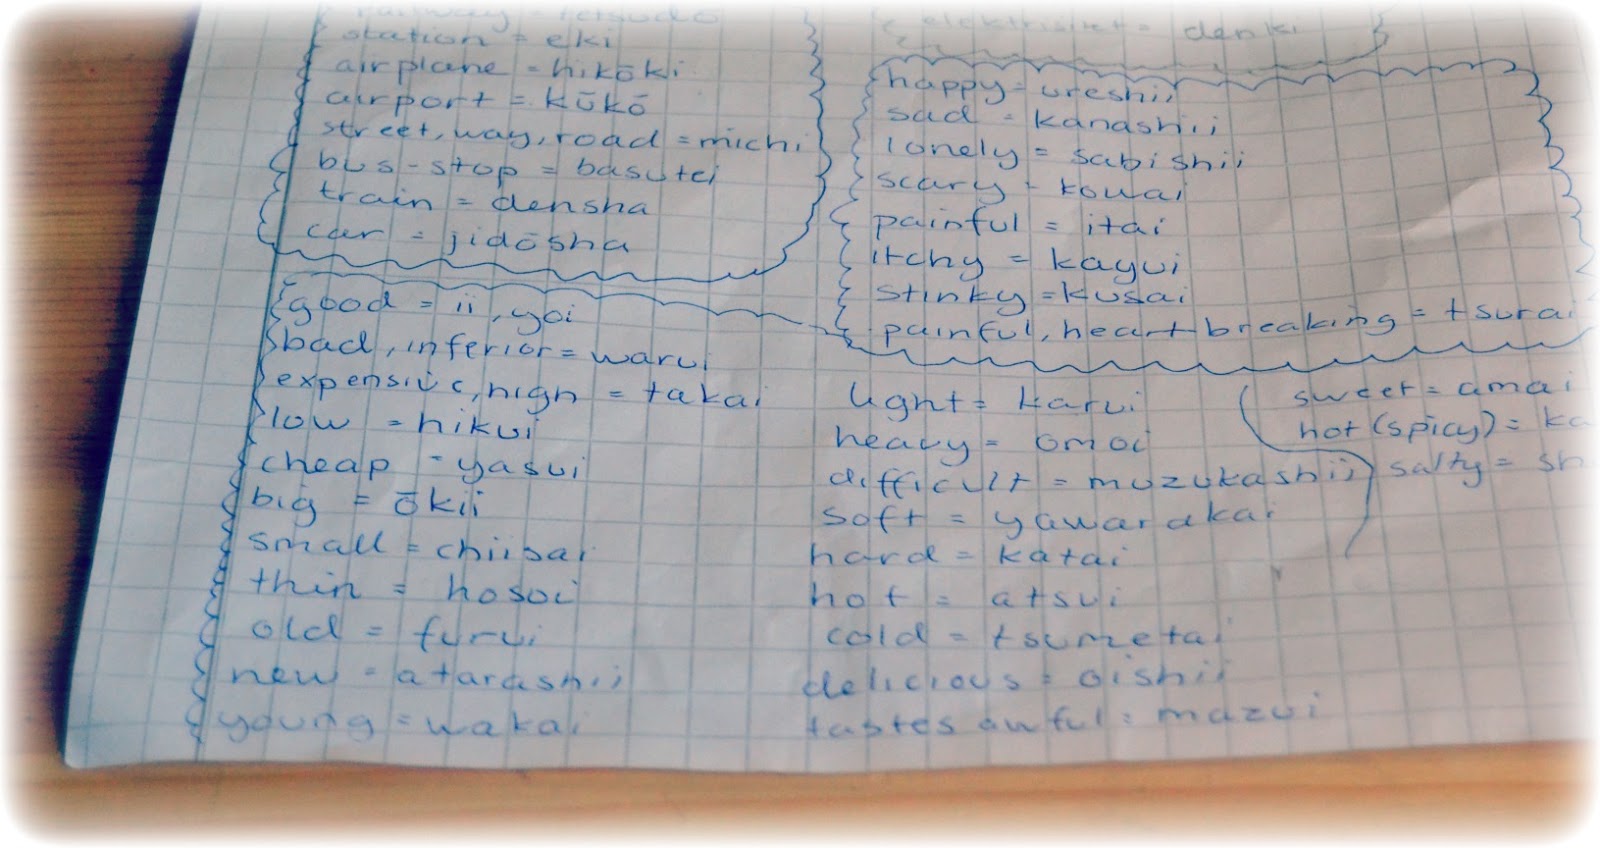 railway = tetsudō
station = eki
airplane = hikōki
airport = kūkō
street, way, road = michi
bus-stop = basutei
train = densha
car = jidōsha
elektrisitet = denki
happy = ureshii
sad = kanashii
lonely = sabishii
scary = kowai
painful = itai
itchy = kayui
stinky = kusai
painful, heartbreaking = tsurai
good = ii, yoi
bad, inferior = warui
expensive, high = takai
low = hikui
cheap = yasui
big = ōkii
small = chiisai
thin = hosoi
old = furui
new = atarashii
young = wakai
light = karui
heavy = omoi
difficult = muzukashii
soft = yawarakai
hard = katai
hot = atsui
cold = tsumetai
delicious = oishii
tastes awful = mazui
sweet = amai
hot (spicy) = ka
salty = sh